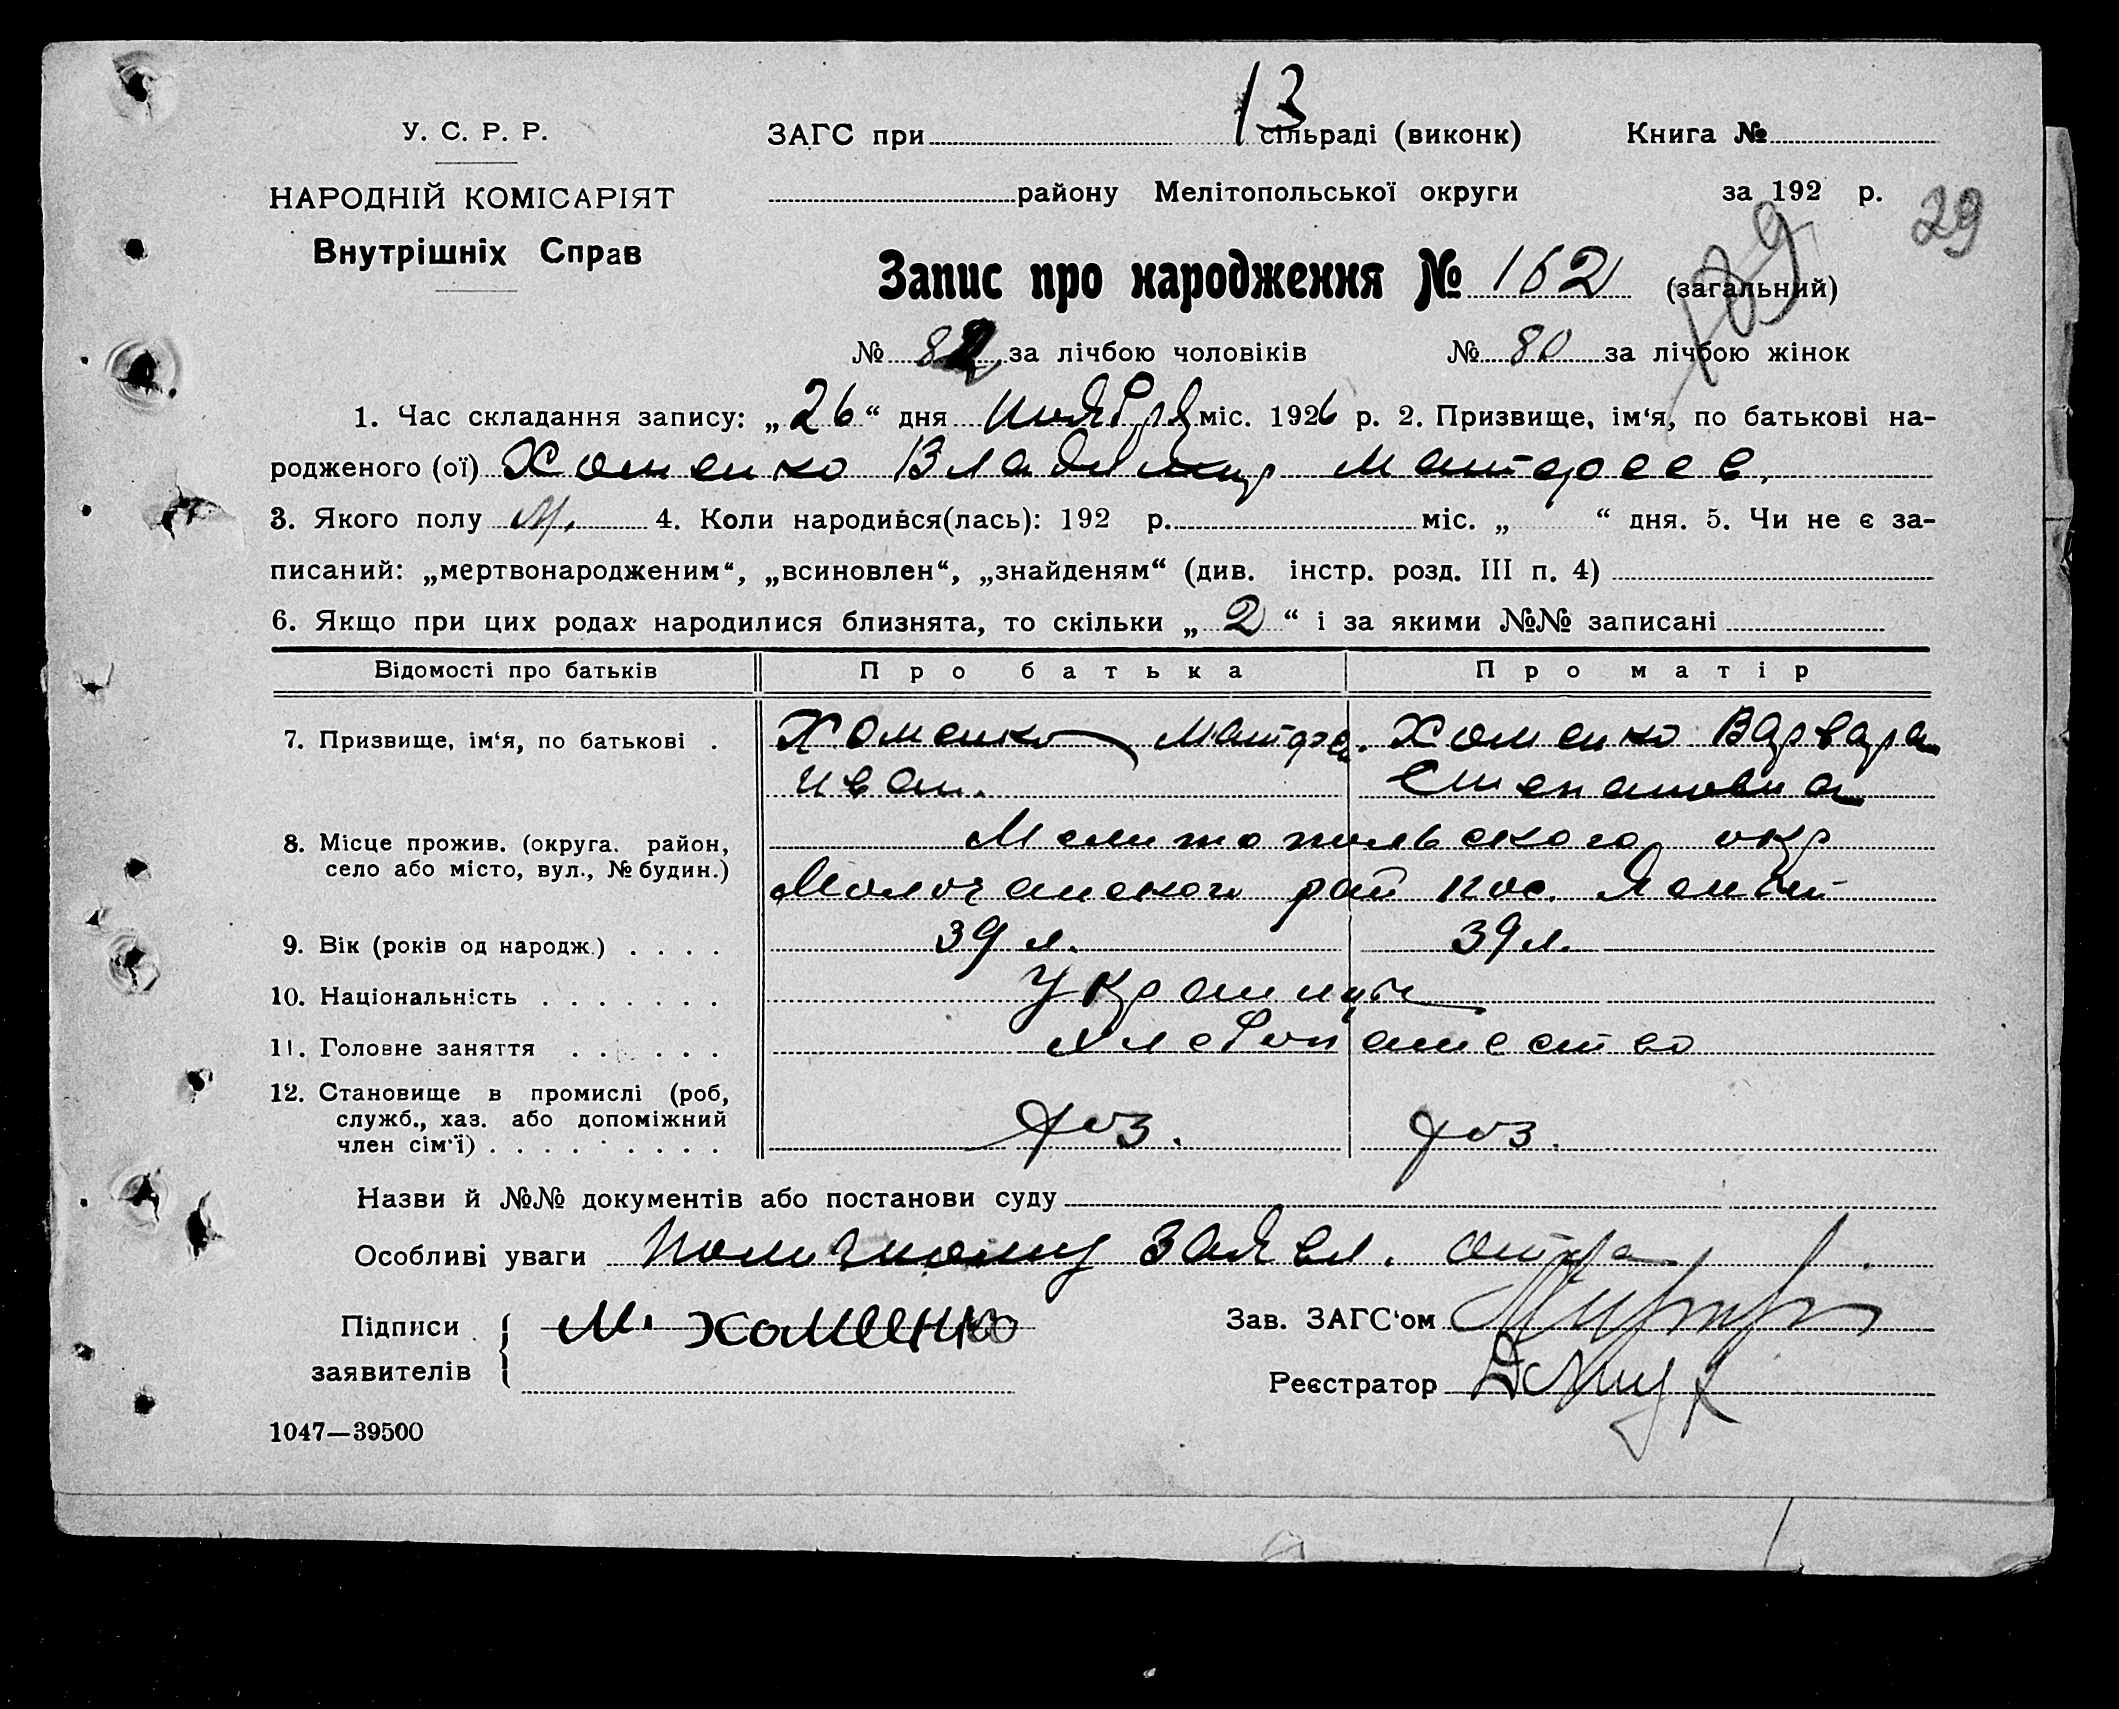 13
У. С. Р. Р. ЗАГС при сільраді (виконк) Книга №
НАРОДНІЙ КОМІСАРІЯТ району Мелітопольської округи за 192 р. 29
Внутрішніх Справ
Запис про народження № 162 (загальний)
№ 82 за лічбою чоловіків № 80 за лічбою жінок
1. Час складання запису: „26“ дня ноября міс. 1926 р. 2. Призвище, ім‘я, по батькові на-
родженого (ої) Хоменко Владимир Матфеев.
3. Якого полу М. 4. Коли народився(лась): 192 р. міс. „ “ дня. 5. Чи не є за-
писаний: „мертвонародженим“, „всиновлен“, „знайденям“ (див. інстр. розд. III п. 4)
6. Якщо при цих родах народилися близнята, то скільки „2“ і за якими №№ записані
Відомості про батьків Про батька Про матір
7. Призвище, ім‘я, по батькові . Хоменко Матфе. Хоменко Варвара
Иван. Степановна
8. Місце прожив. (округа. район, Мелитопольского окр
село або місто, вул., № будин.) Молочанского рай пос.
9. Вік (років од народж.) . . . . 39 л. 39 л.
10. Національність . . . . . . . Украинцы
11. Головне заняття . . . . . . хлебопашество
12. Становище в промислі (роб,
служб., хаз. або допоміжний хоз. хоз.
член сім‘ї) . . . . . . . .
Назви й №№ документів або постанови суду
Особливі уваги По личному заявл. отца
Підписи М. Хоменко Зав. ЗАГС‘ом
заявителів Реєстратор
1047—39500